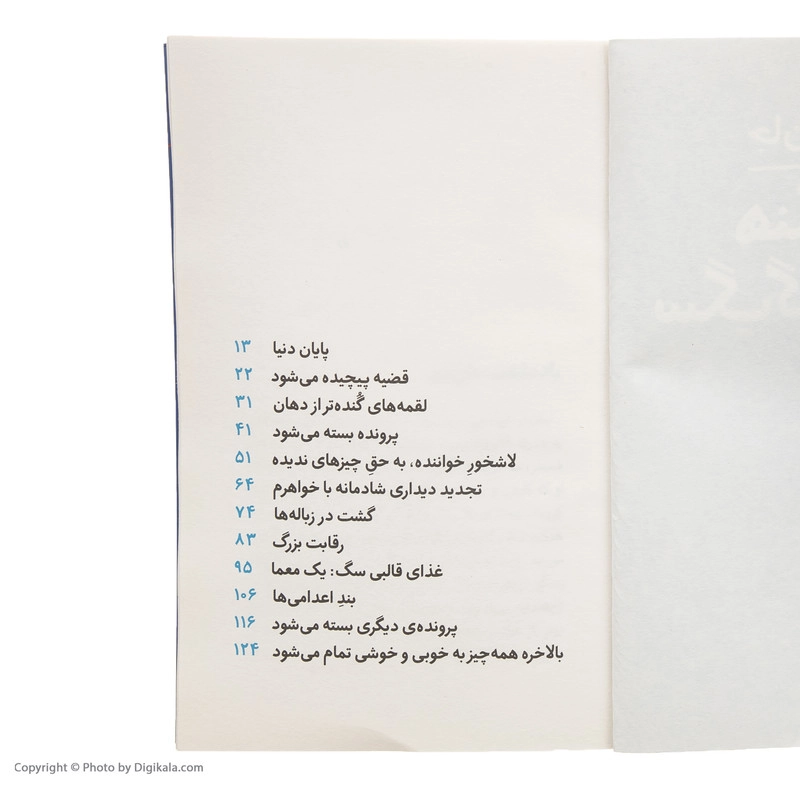 پایان دنیا ۱۳
قضیه پیچیده می‌شود ۲۲
لقمه‌های گُنده‌تر از دهان ۳۱
پرونده بسته می‌شود ۴۱
لاشخورِ خواننده، به حقِ چیزهای ندیده ۵۱
تجدید دیداری شادمانه با خواهرم ۶۴
گشت در زباله‌ها ۷۴
رقابت بزرگ ۸۳
غذای قالبی سگ: یک معما ۹۵
بندِ اعدامی‌ها ۱۰۶
پرونده‌ی دیگری بسته می‌شود ۱۱۶
بالاخره همه‌چیز به خوبی و خوشی تمام می‌شود ۱۲۴
Copyright © Photo by Digikala.com